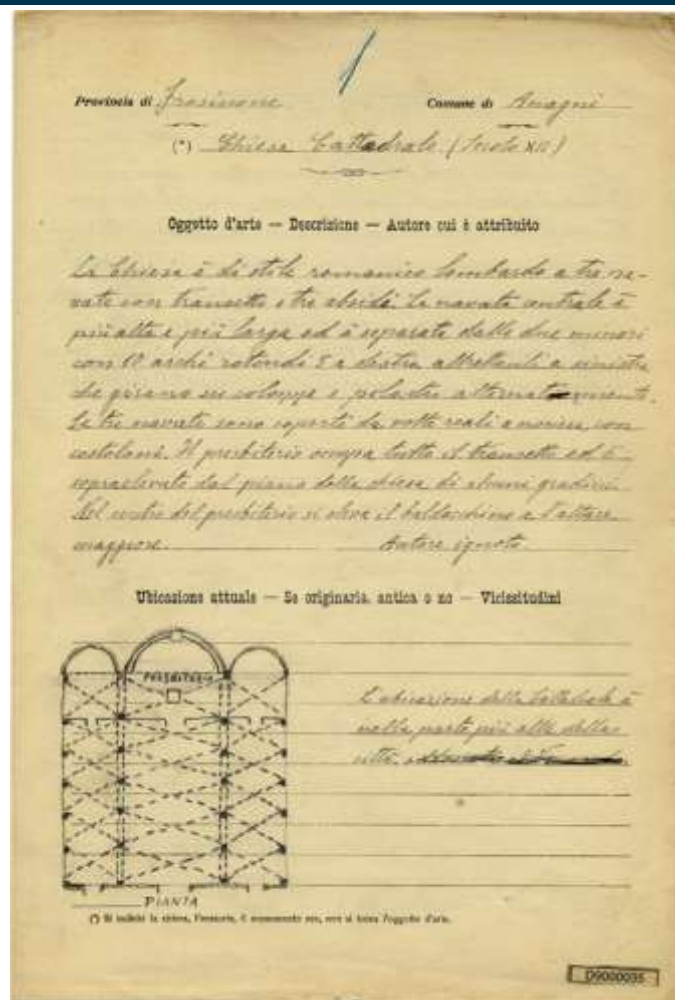 1
Provincia di Frosinone Comune di Anagni
(*) Chiesa Cattedrale (Secolo XII)
Oggetto d'arte — Descrizione — Autore cui è attribuito
La Chiesa è di stile romanico lombardo a tre na-
vate con transetto e tre absidi. La navata centrale è
più alta e più larga ed è separata dalle due minori
con 10 archi rotondi 5 a destra altrettanti a sinistra
che girano su colonne e pilastri alternatamente.
Le tre navate sono coperte da volte reali a crociera, con
costoloni. Il presbiterio occupa tutto il transetto ed è
sopraelevato dal piano della chiesa di alcuni gradini.
Nel centro del presbiterio si eleva il baldacchino e l'altare
maggiore. Autore ignoto
Ubicazione attuale — Se originaria, antica o no — Vicissitudini
PRESBITERIO
L'ubicazione della Cattedrale è
nella parte più alta della
città
PIANTA
(*) Si indichi la chiesa, l'oratorio, il monumento ecc. ove si trova l'oggetto d'arte.
D9000035